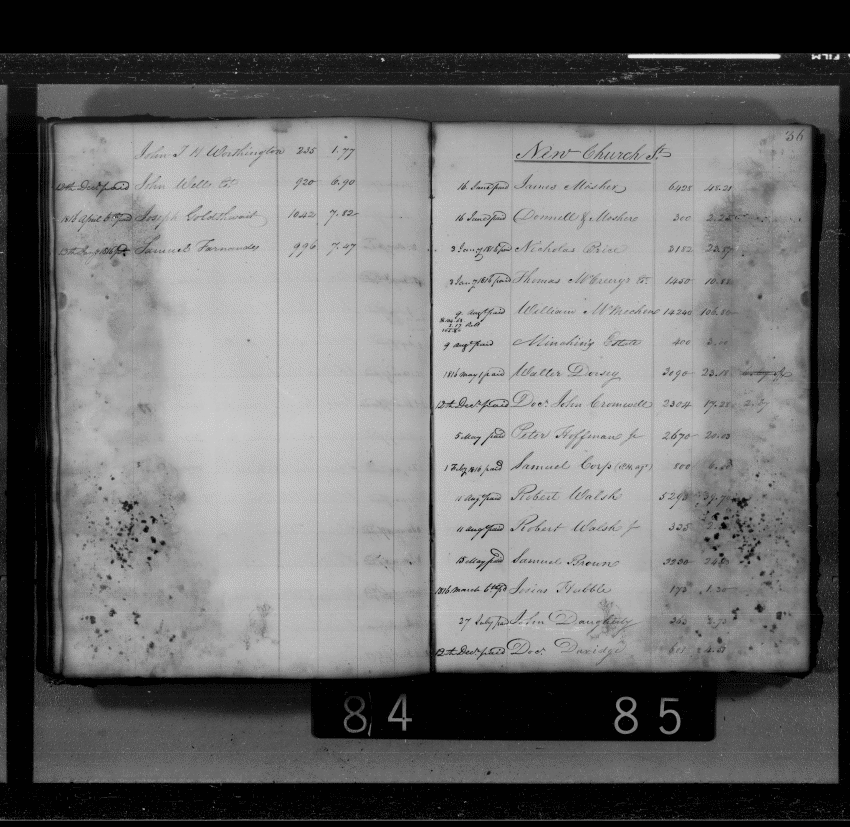 John T H Worthington 235 1.77
12th Decr paid John Wells 920 6.90
1816 April 6 pd Joseph Goldthwait 1042 7.82
13th 1816 pd Samuel Farnandes 996 7.47
36
New Church St.
16 June paid James Mosher 6428 48.21
16 June paid Donnell & Moshers 300 2.25
3 Jany 1816 pd Nicholas Brice 3182
3 Jany 1816 paid Thomas 1450 10.88
9 Augt paid William McMechen 14240 106.80
9 Augt paid Estate 400 3.00
1816 May 1 paid Walter Dorsey 3090 23.18
12th Decr paid Docr John Cromwell 2304 17.28
5 May paid Peter Hoffman Jr 2670 20.03
1 Feby 1816 paid Samuel Corp 800
11 Augt paid Robert Walsh
11 Augt paid Robert Walsh Jr 335
15 May paid Samuel Brown
1816 March 6th pd Josias Hubble 173 1.30
27 July paid John Daugherty
12th Decr paid Docr Davidge
84
85